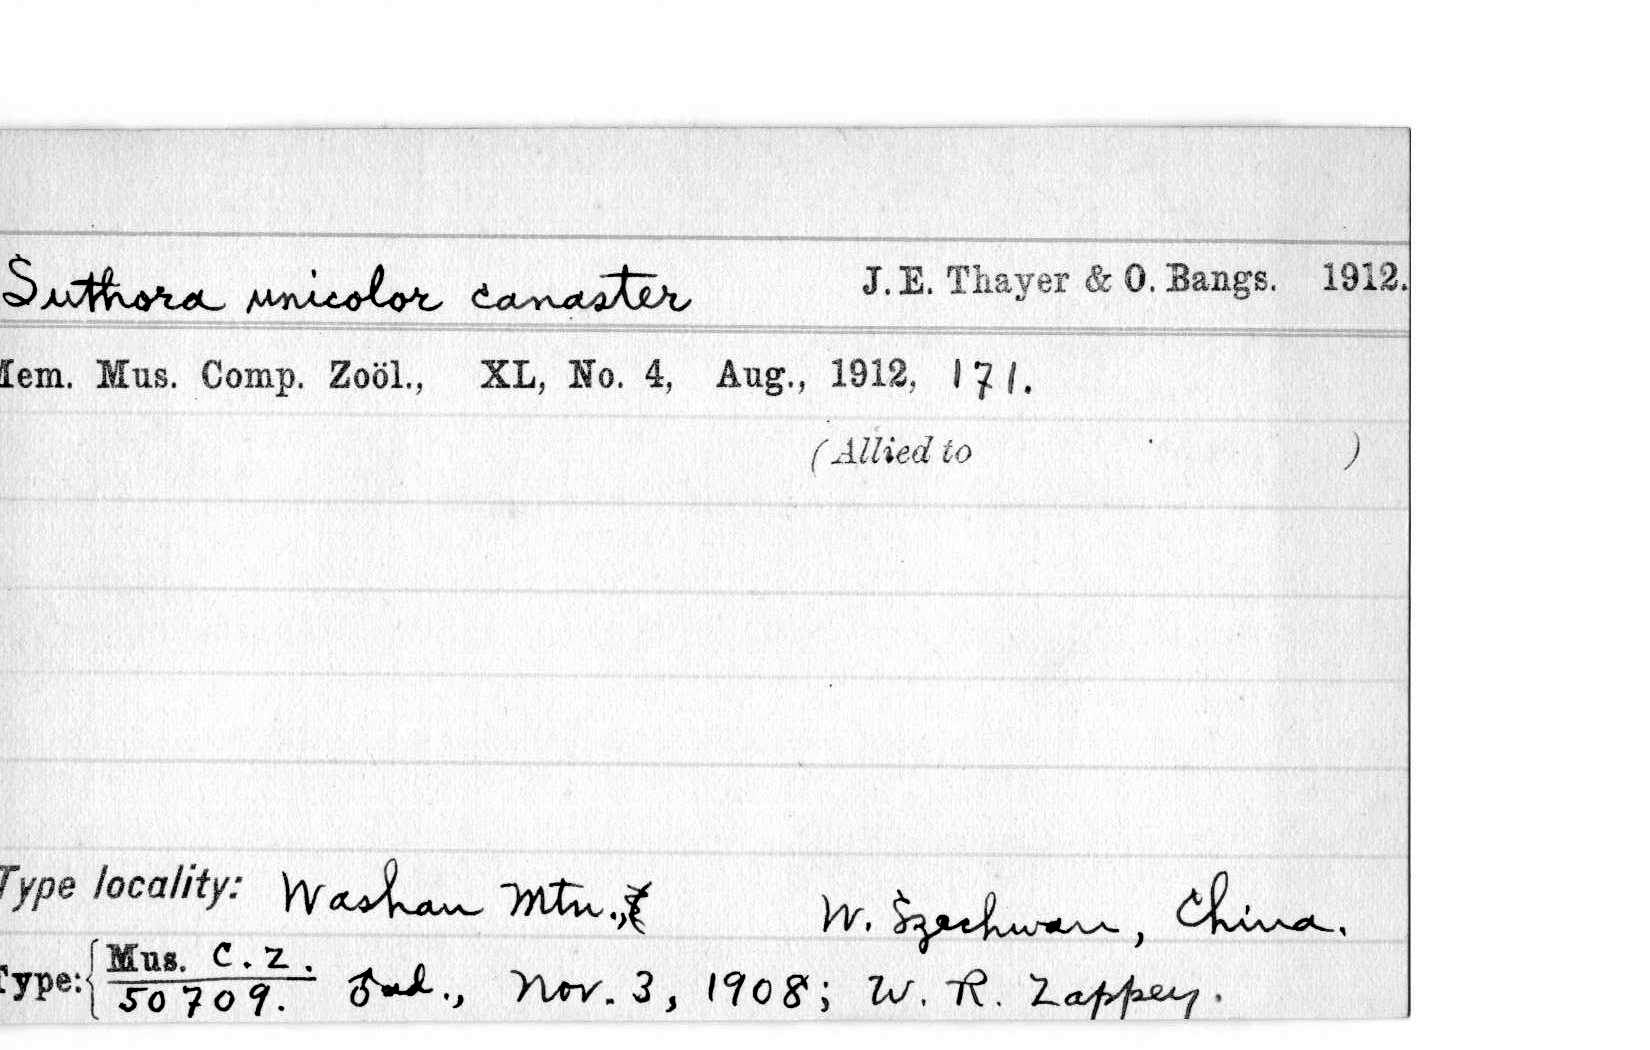 Suthora unicolor canaster J. E. Thayer & O. Bangs. 1912.
Mem. Mus. Comp. Zoöl., XL, No. 4, Aug., 1912, 171.
(Allied to )
Type locality: Washan Mtn., W. Szechwan, China.
Type: Mus. C. Z. 50709. ♂ ad., Nov. 3, 1908; W. R. Zappey.